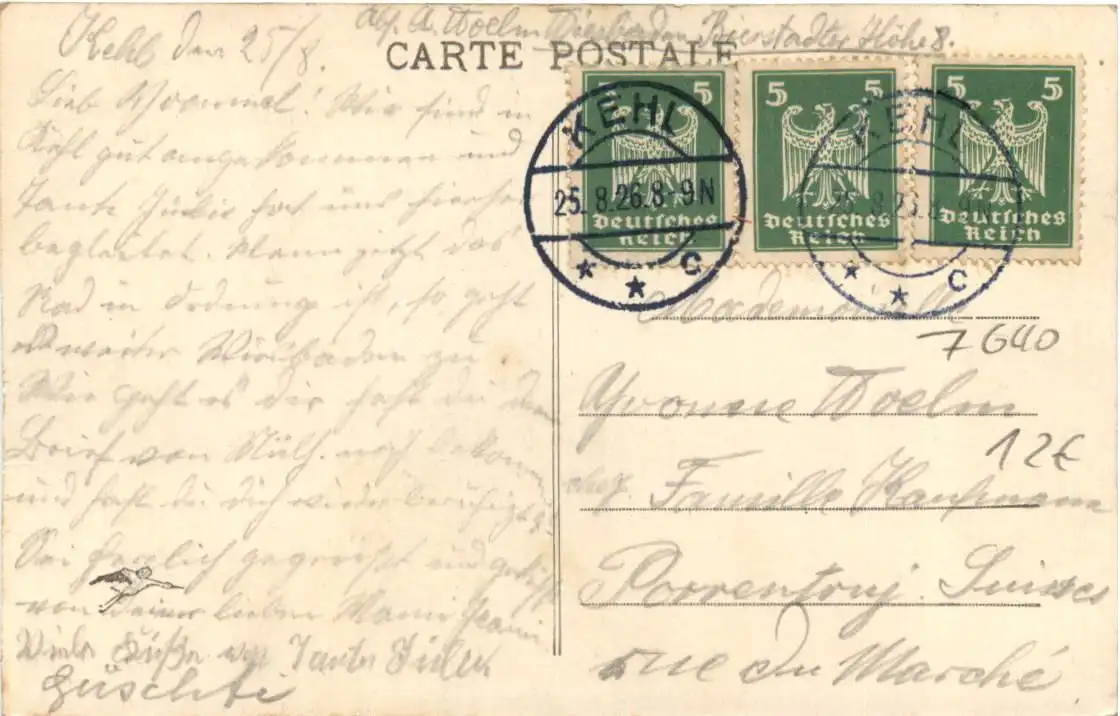 Abs. A. Woelm Wiesbaden Bierstadter Höhe 8.
CARTE POSTALE
Kehl den 25/8.
Lieb ! Wir sind in
Kehl gut angekommen und
Tante Julie hat uns hierher
begleitet. Wenn jetzt das
Rad in Ordnung ist, so geht
es weiter Wiesbaden zu
Wie geht es dir hast du den
Brief von Mülh. noch bekommen
und hast du dich wieder beruhigt?
Sei herzlich gegrüsst und geküsst
von deiner lieben Mami
Viele Küsse von Tante Julie
5 5
Deutsches
Reich
5 5
Deutsches
Reich
5 5
Deutsches
Reich
KEHL
25. 8.26.8-9N
* * C
KEHL
25. 8.26.8-9N
* * C
Mademoiselle
7640
Yvonne Woelm
12€
chez. Famille Kaufmann
Porrentruy. Suisse
rue du Marché